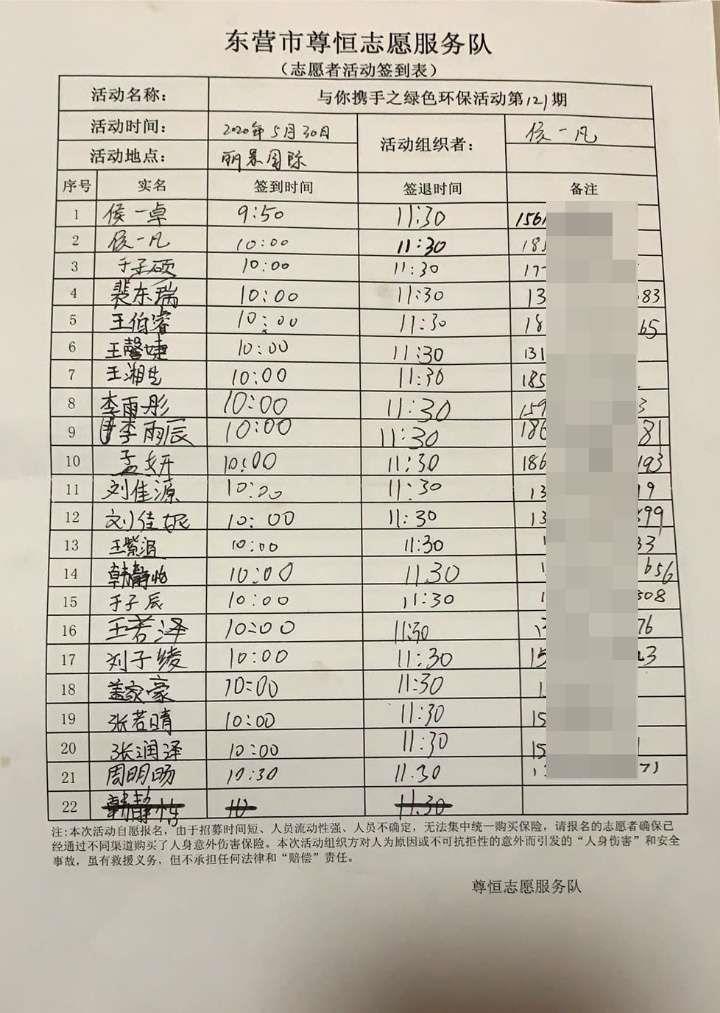 东营市尊恒志愿服务队
（志愿者活动签到表）
活动名称： 与你携手之绿色环保活动第121期
活动时间： 2020年5月30日 活动组织者： 侯一凡
活动地点： 丽景国际
序号 实名 签到时间 签退时间 备注
1 侯一卓 9:50 11:30 1561
2 侯一凡 10:00 11:30 185
3 于子硕 10:00 11:30 17
4 裴东瑞 10:00 11:30 13 83
5 王伯睿 10:00 11:30 18 65
6 王馨婕 10:00 11:30 131
7 王湘生 10:00 11:30 185
8 李雨彤 10:00 11:30 159 3
9 李雨辰 10:00 11:30 186 81
10 孟妍 10:00 11:30 186 193
11 刘佳源 10:00 11:30 13 19
12 刘佳妮 10:00 11:30 13 899
13 王紫涵 10:00 11:30 1 33
14 韩静怡 10:00 11:30 656
15 于子辰 10:00 11:30 1 308
16 王若泽 10:00 11:30 76
17 刘子绫 10:00 11:30 15 23
18 盖家豪 10:00 11:30 1
19 张若晴 10:00 11:30 15
20 张润泽 10:00 11:30 15
21 周明旸 10:30 11:30 71
22 韩静怡 10 11:30
注：本次活动自愿报名，由于招募时间短、人员流动性强、人员不确定，无法集中统一购买保险，请报名的志愿者确保已
经通过不同渠道购买了人身意外伤害保险。本次活动组织方对人为原因或不可抗拒性的意外而引发的“人身伤害”和安全
事故，虽有救援义务，但不承担任何法律和“赔偿”责任。
尊恒志愿服务队